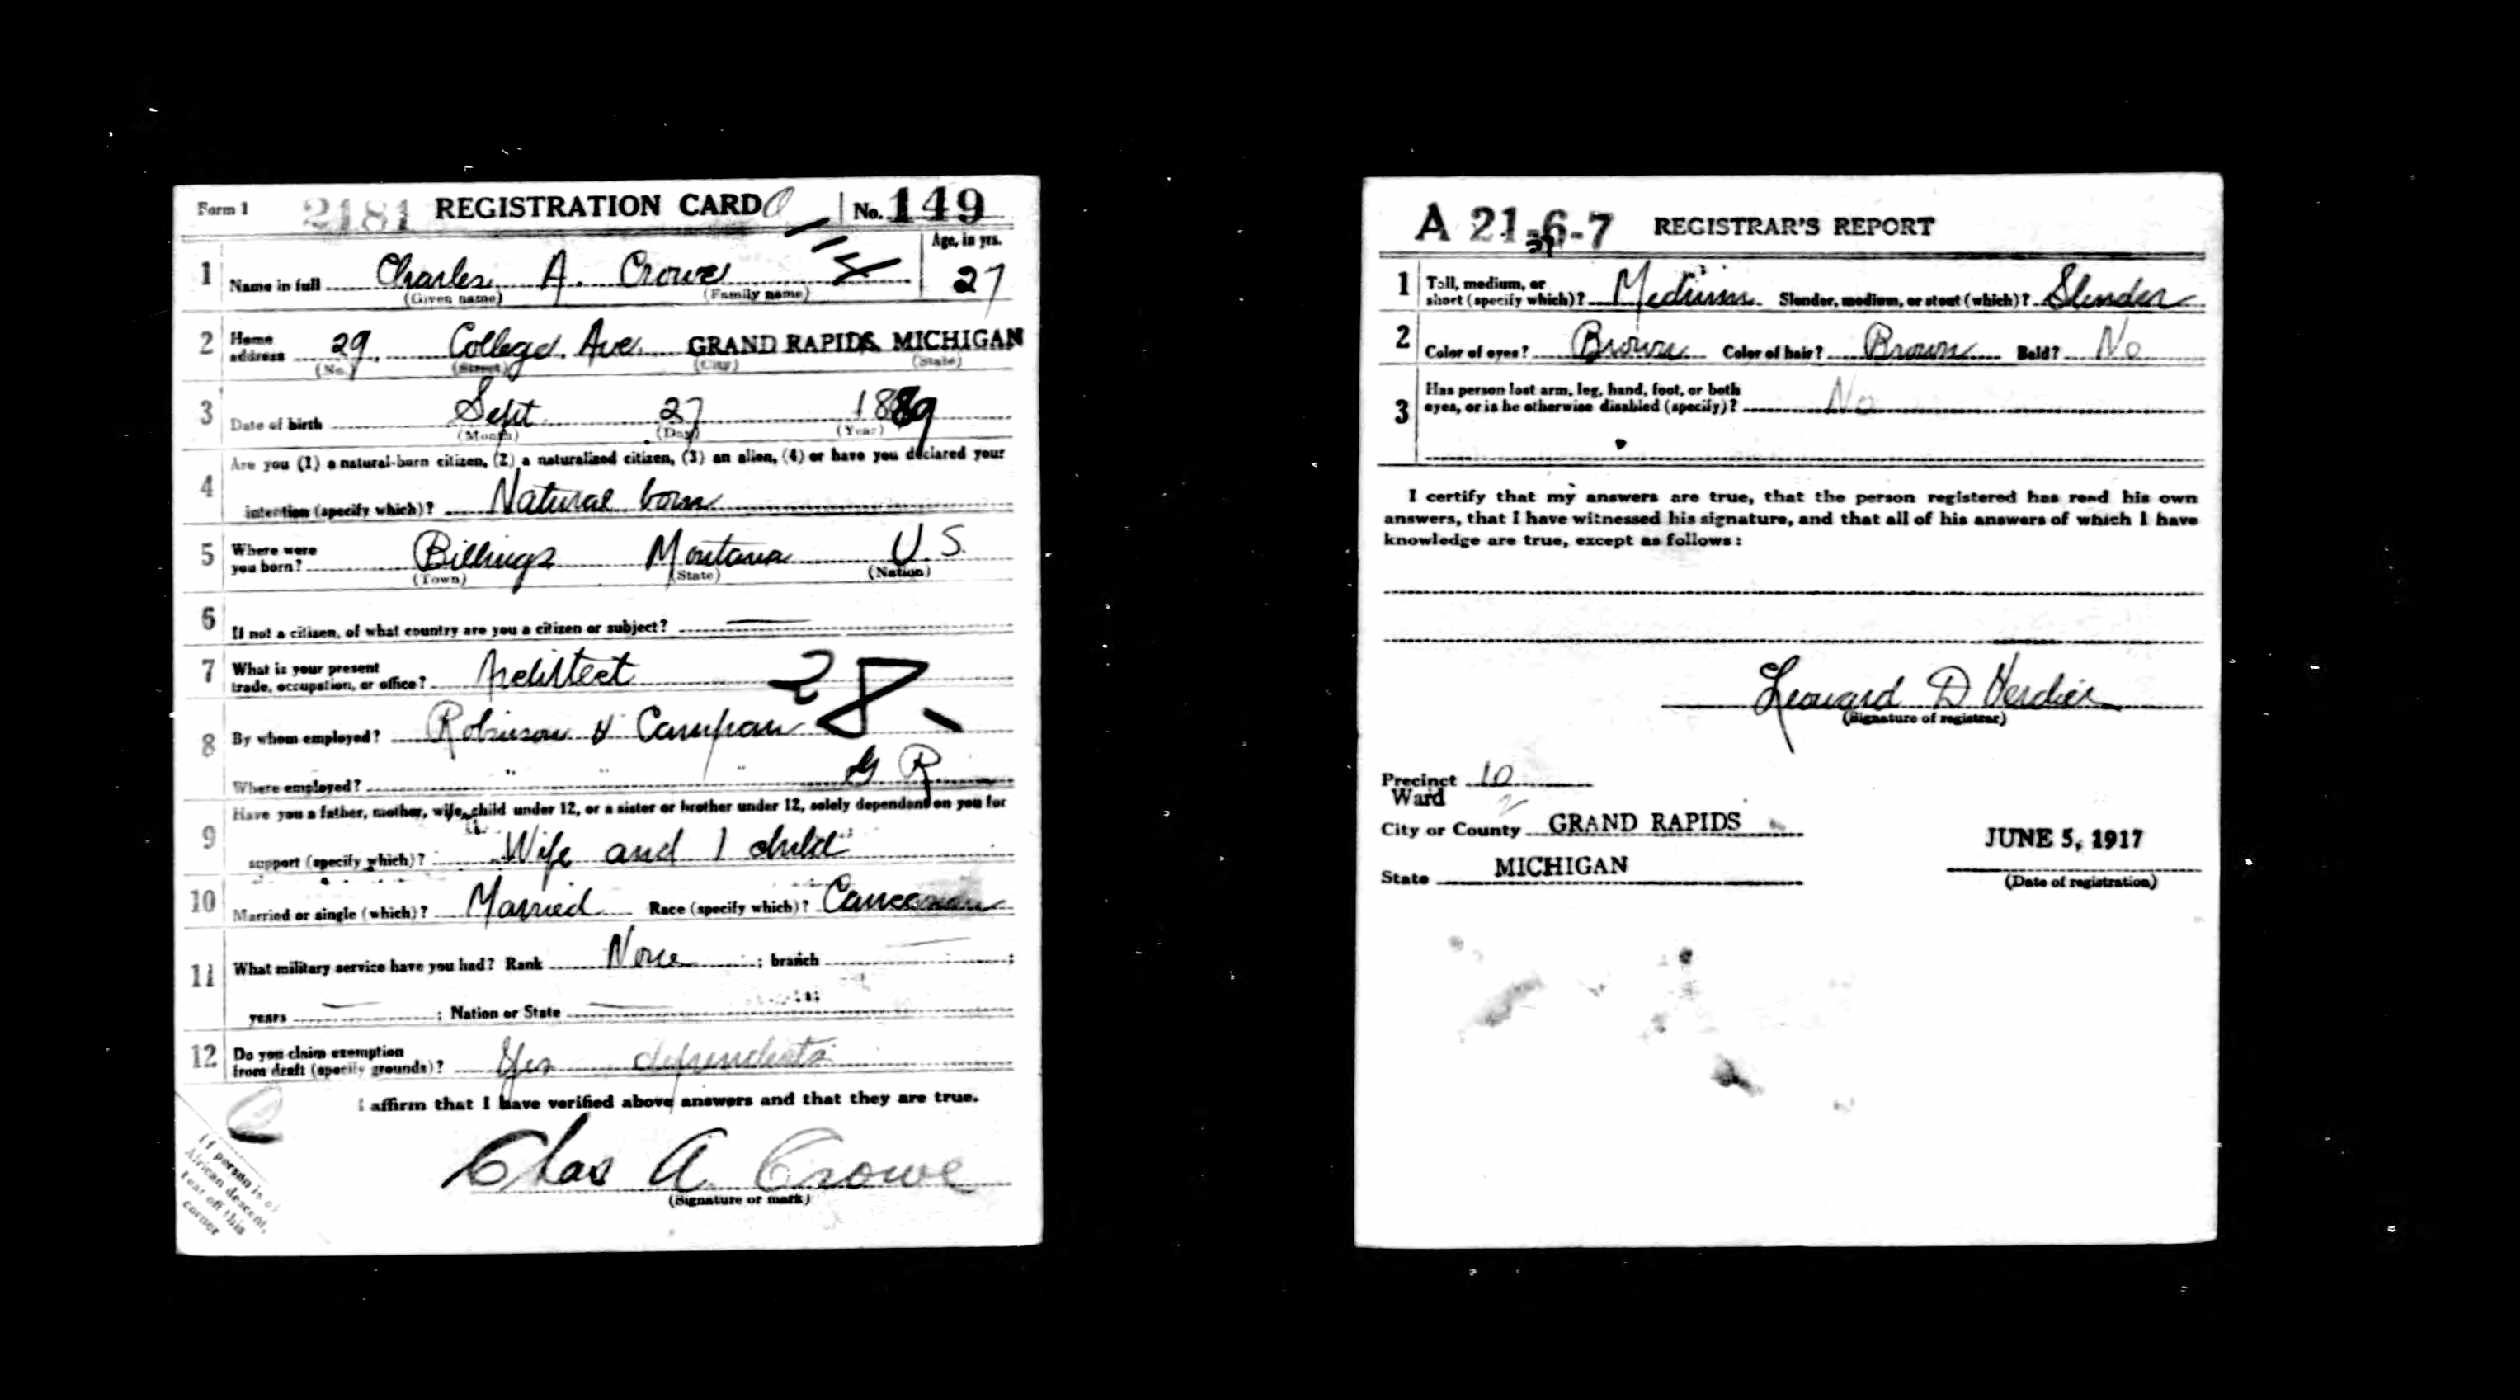 Form 1 2181 REGISTRATION CARD No. 149
Age, in yrs.
1 Name in full Charles A. Crowe 27
(Given name) (Family name)
2 Home address 29. College Ave. GRAND RAPIDS, MICHIGAN
(No.) (Street) (City) (State)
3 Date of birth Sept 27 1889
(Month) (Day) (Year)
4 Are you (1) a natural-born citizen, (2) a naturalized citizen, (3) an alien, (4) or have you declared your
intention (specify which)? Natural born
5 Where were you born? Billings Montana U.S.
(Town) (State) (Nation)
6 If not a citizen, of what country are you a citizen or subject?
7 What is your present trade, occupation, or office? Architect 28
8 By whom employed? Robinson & Campau
Where employed? " " " G R
9 Have you a father, mother, wife, child under 12, or a sister or brother under 12, solely dependent on you for
support (specify which)? Wife and 1 child
10 Married or single (which)? Married Race (specify which)? Caucasian
11 What military service have you had? Rank None ; branch ;
years ; Nation or State
12 Do you claim exemption from draft (specify grounds)? Yes dependents
I affirm that I have verified above answers and that they are true.
Chas A. Crowe
(Signature or mark)
If person is of
African descent,
tear off this
corner
A 21-6-7 REGISTRAR'S REPORT
21
1 Tall, medium, or short (specify which)? Medium Slender, medium, or stout (which)? Slender
2 Color of eyes? Brown Color of hair? Brown Bald? No
3 Has person lost arm, leg, hand, foot, or both
eyes, or is he otherwise disabled (specify)? No
I certify that my answers are true, that the person registered has read his own
answers, that I have witnessed his signature, and that all of his answers of which I have
knowledge are true, except as follows:
Leonard D Verdier
(Signature of registrar)
Precinct 10
Ward 2
City or County GRAND RAPIDS
State MICHIGAN
JUNE 5, 1917
(Date of registration)